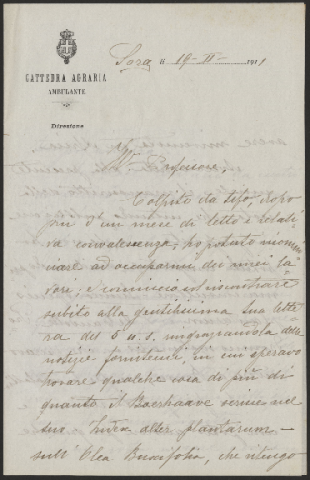 CATTEDRA AGRARIA
AMBULANTE
Direzione
Sora li 19-II-1911
Ill. Professore,
Colpito da tifo, dopo
più d'un mese di letto e relati-
va convalescenza, ho potuto incomin-
ciare ad occuparmi dei miei la-
vori; e comincio col riscontrare
subito alla gentilissima sua lette-
ra del 5 u.s. ringraziandola delle
notizie fornitemi, in cui speravo
trovare qualche cosa di più di
quanto il Boerhaave scrisse nel
suo Index alter plantarum -
sull' Olea Buxifolia, che ritengo